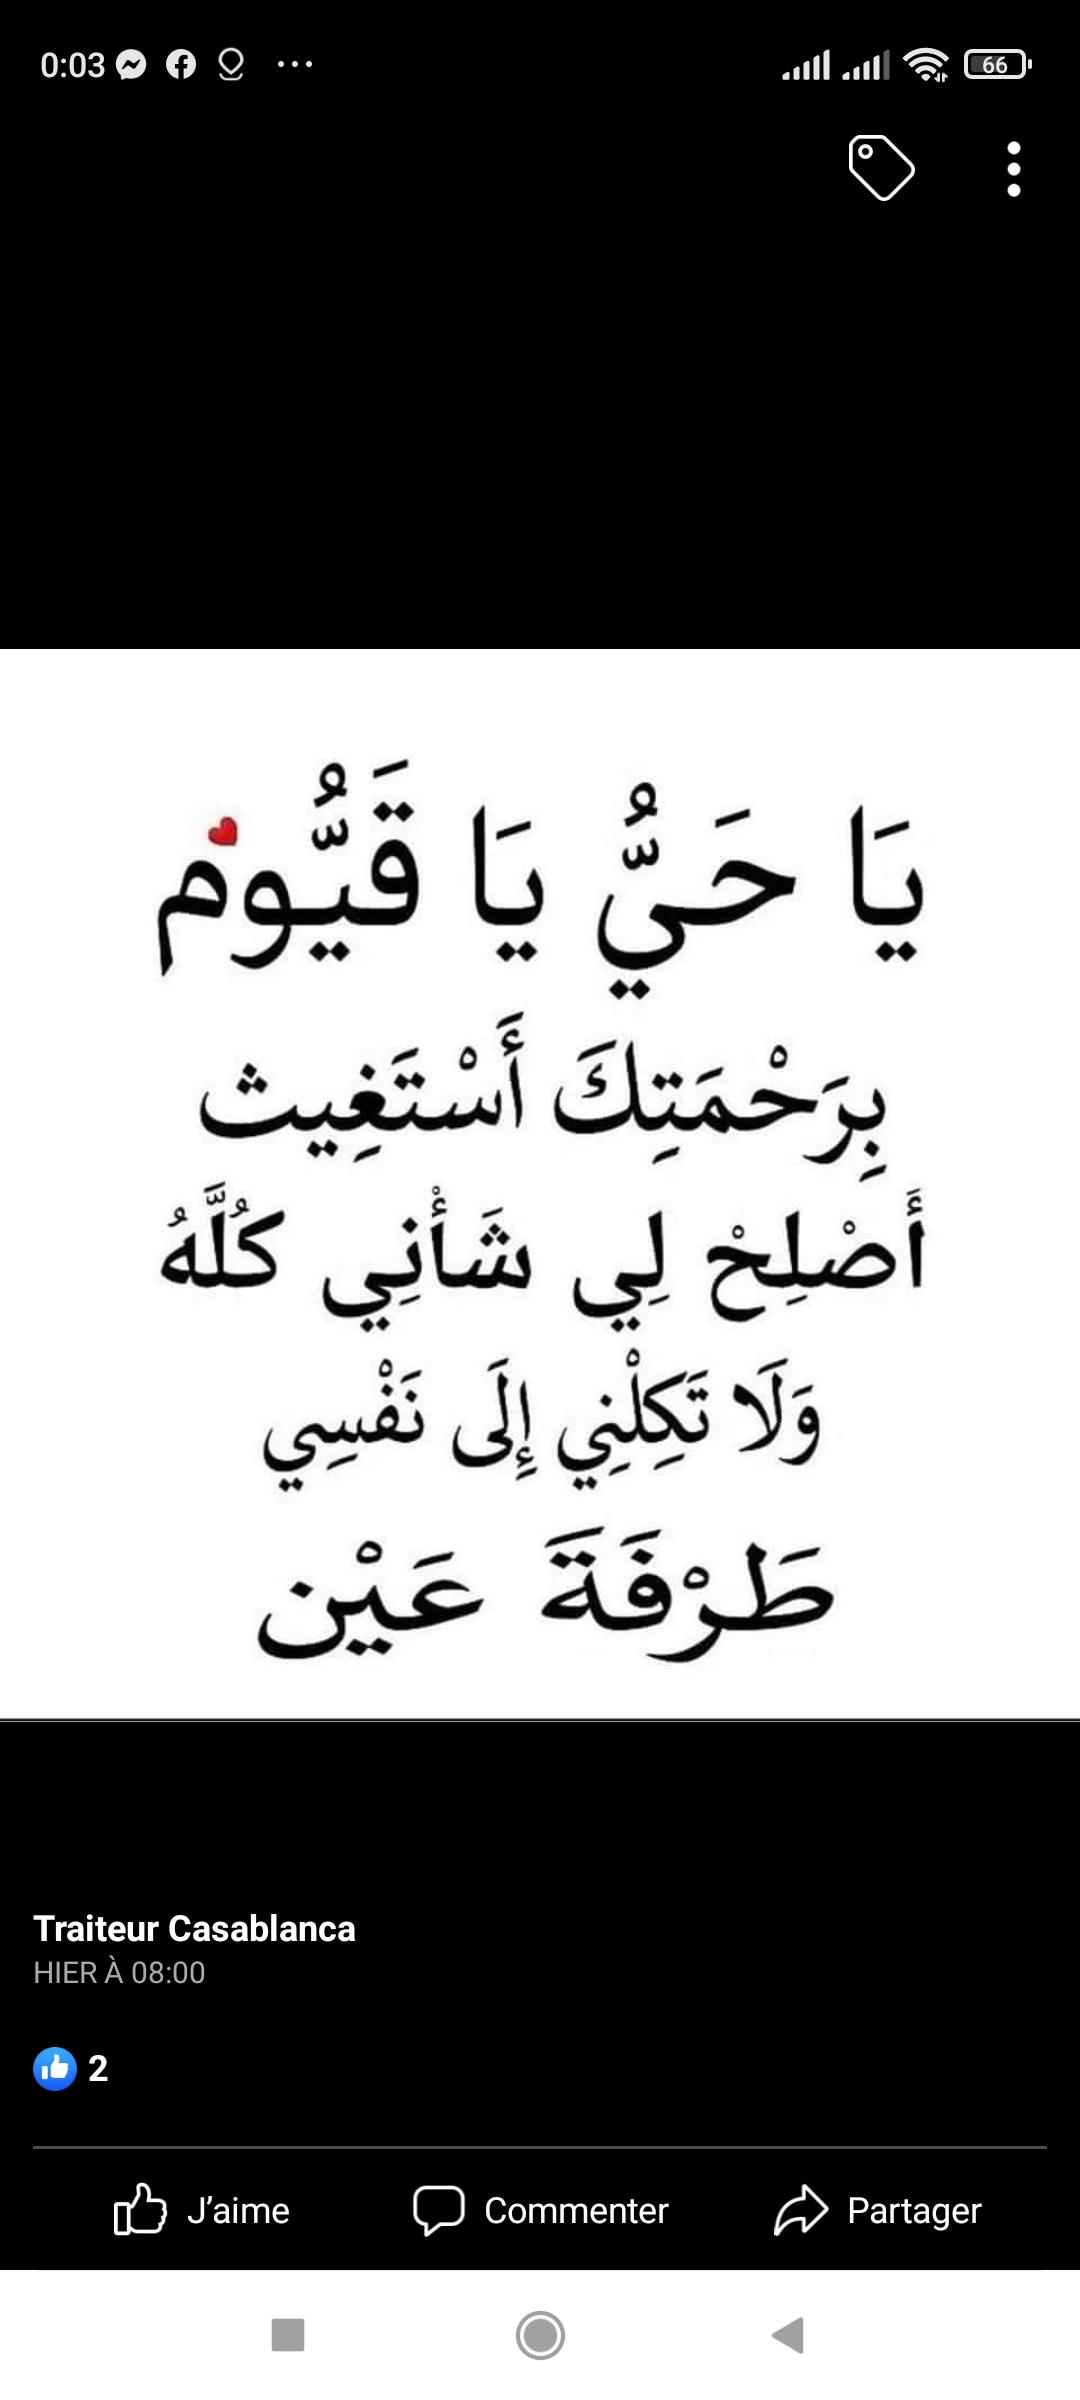 0:03
66
يَا حَيُّ يَا قَيُّوم
بِرَحْمَتِكَ أَسْتَغِيث
أَصْلِحْ لِي شَأْنِي كُلَّهُ
وَلَا تَكِلْنِي إِلَى نَفْسِي
طَرْفَةَ عَيْن
Traiteur Casablanca
HIER À 08:00
2
J’aime Commenter Partager